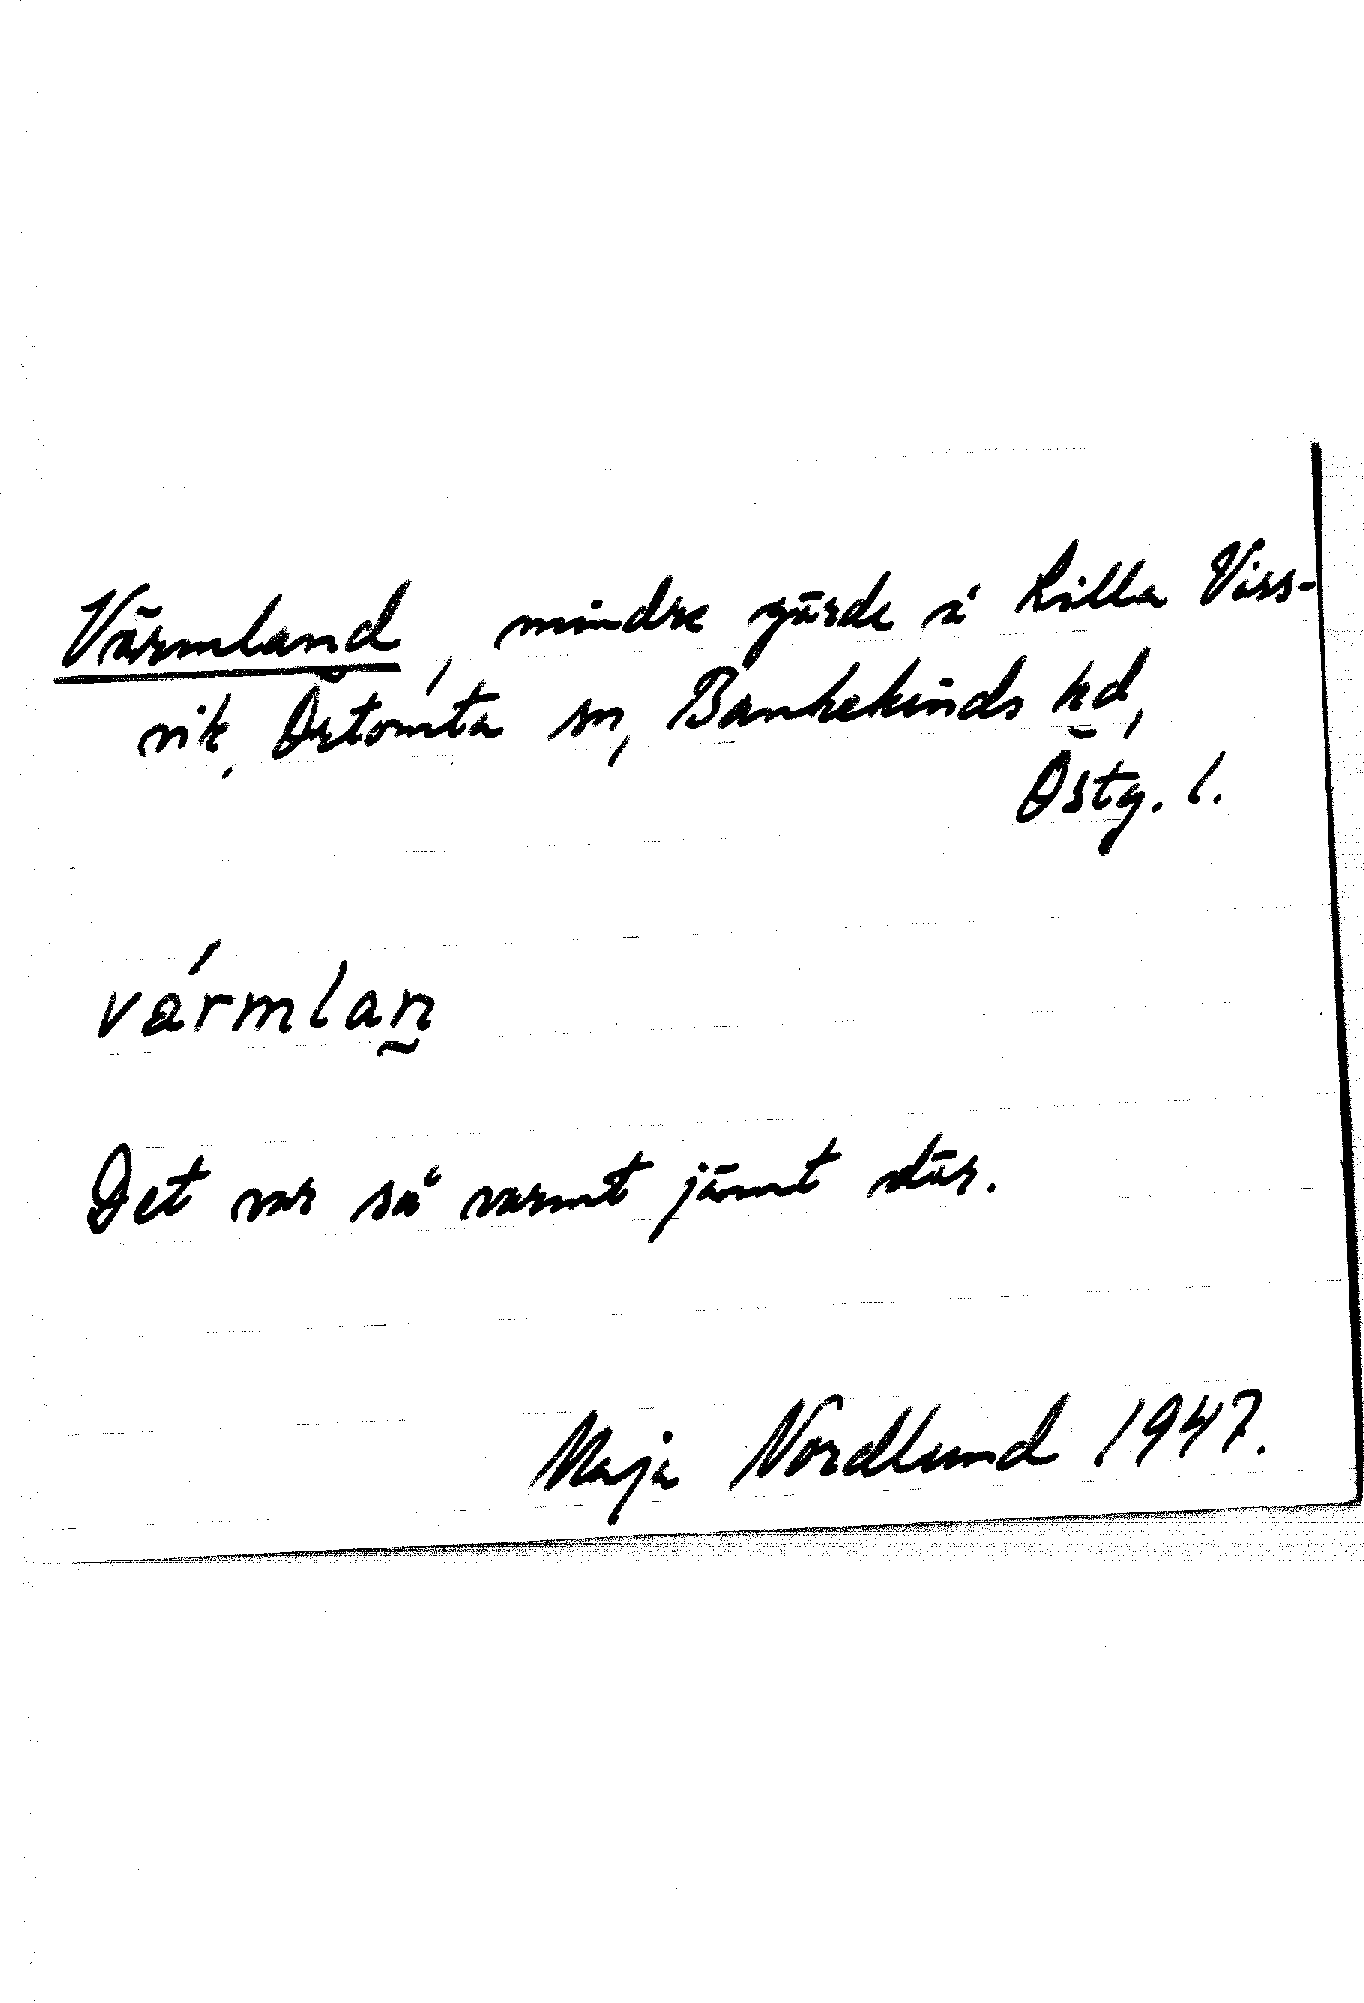 Värmland, mindre gärde å Lilla Viss-
vik, Örtomta sn, Bankekinds hd,
Östg. l.
vármlan̰
Det var så varmt jämt där.
Maja Nordlund 1947.